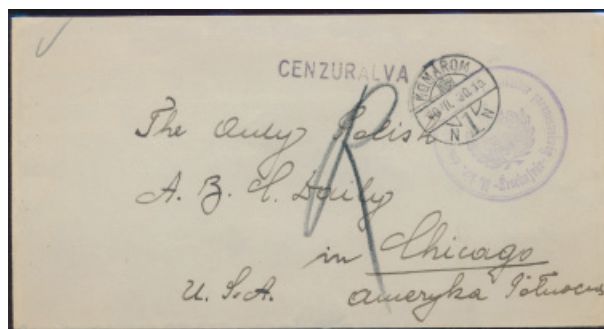 CENZURALVA
KOMAROM
The Only Polish
R
A. B. C. Daily
in Chicago
U.S.A. Ameryka Północna